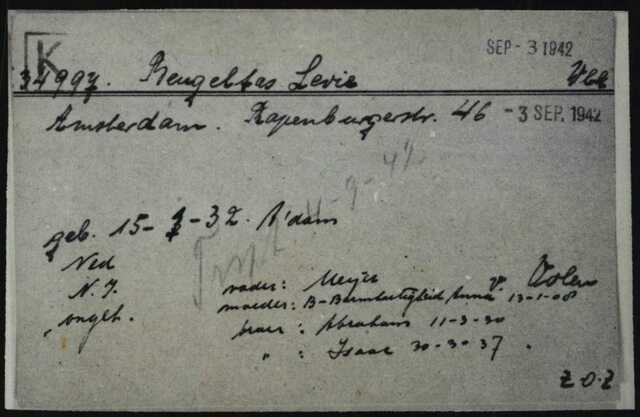 K SEP - 3 1942
34997. Reugeltas Levie
Amsterdam. Rapenburgerstr. 46 - 3 SEP. 1942
11-9-42
geb. 15- -32. A'dam
Ned
N.I. vader: Meyer
ongeh. moeder: B-Barmhartigheid Anna 13-1-08
broer: Abraham 11-3-30
" : Isaac 30-3-37.
Z.O.Z